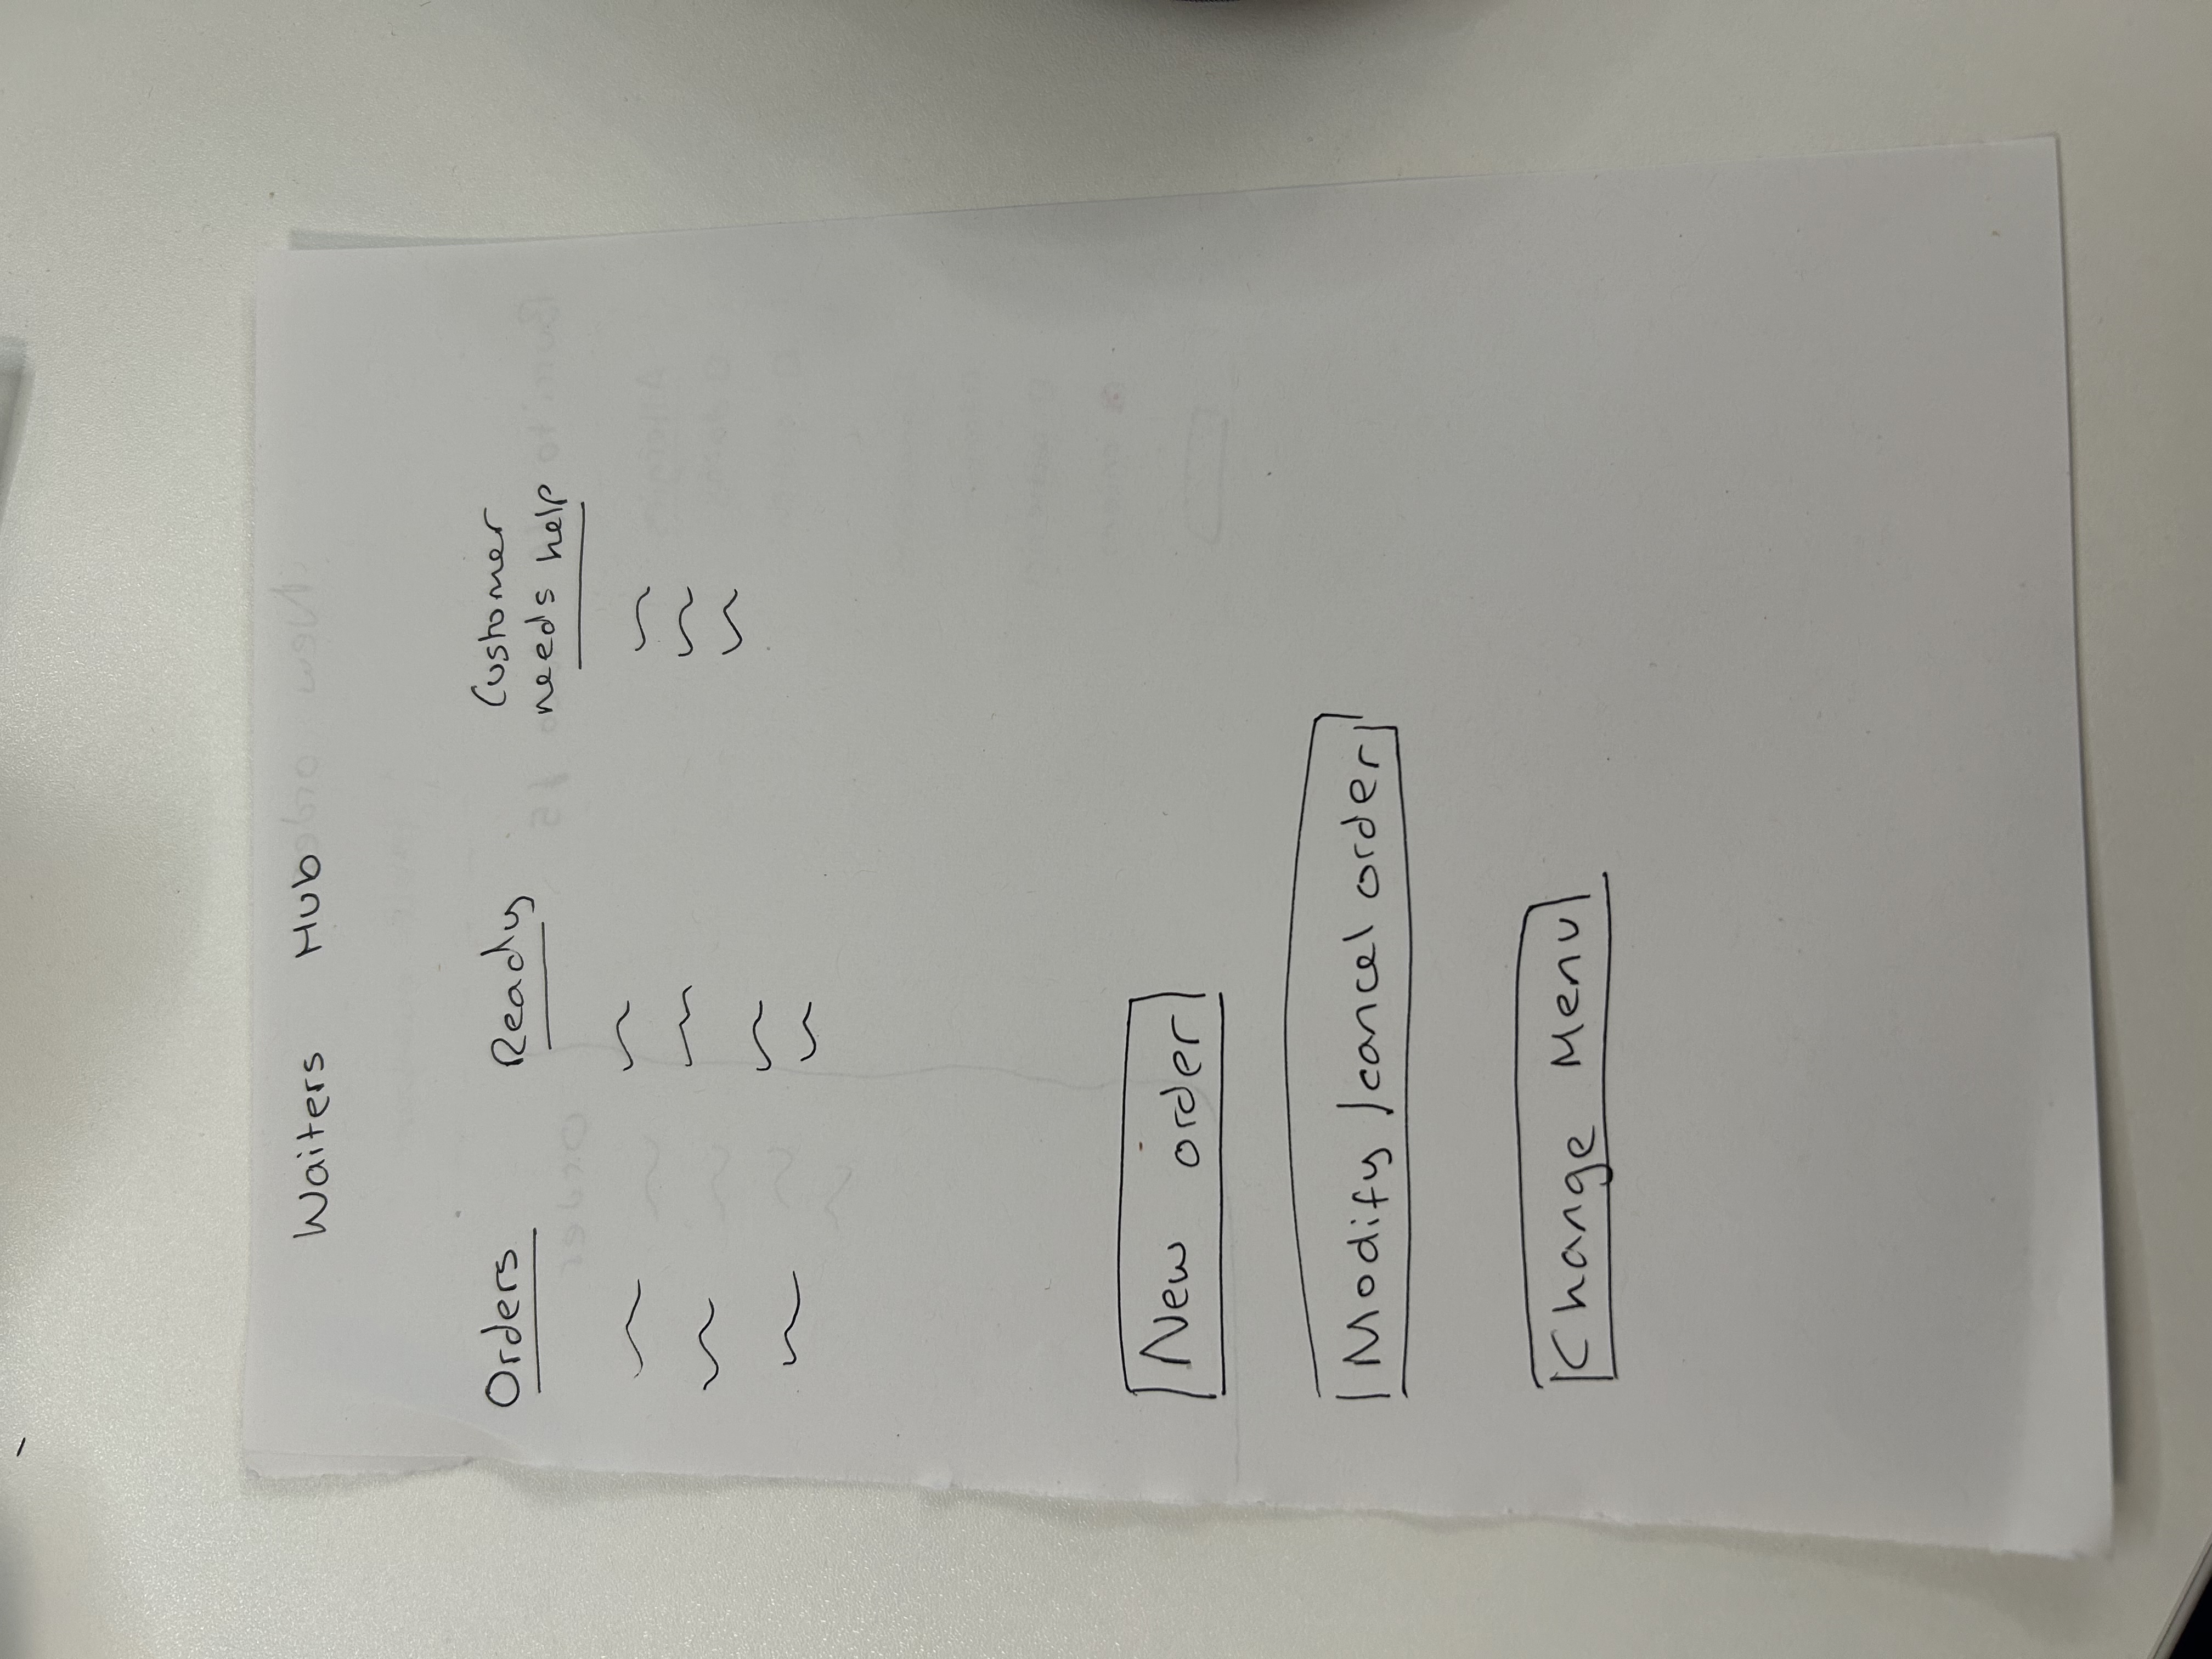 Waiters Hub
Orders
Ready
Customer
needs help
New order
Modify /cancel order
Change Menu